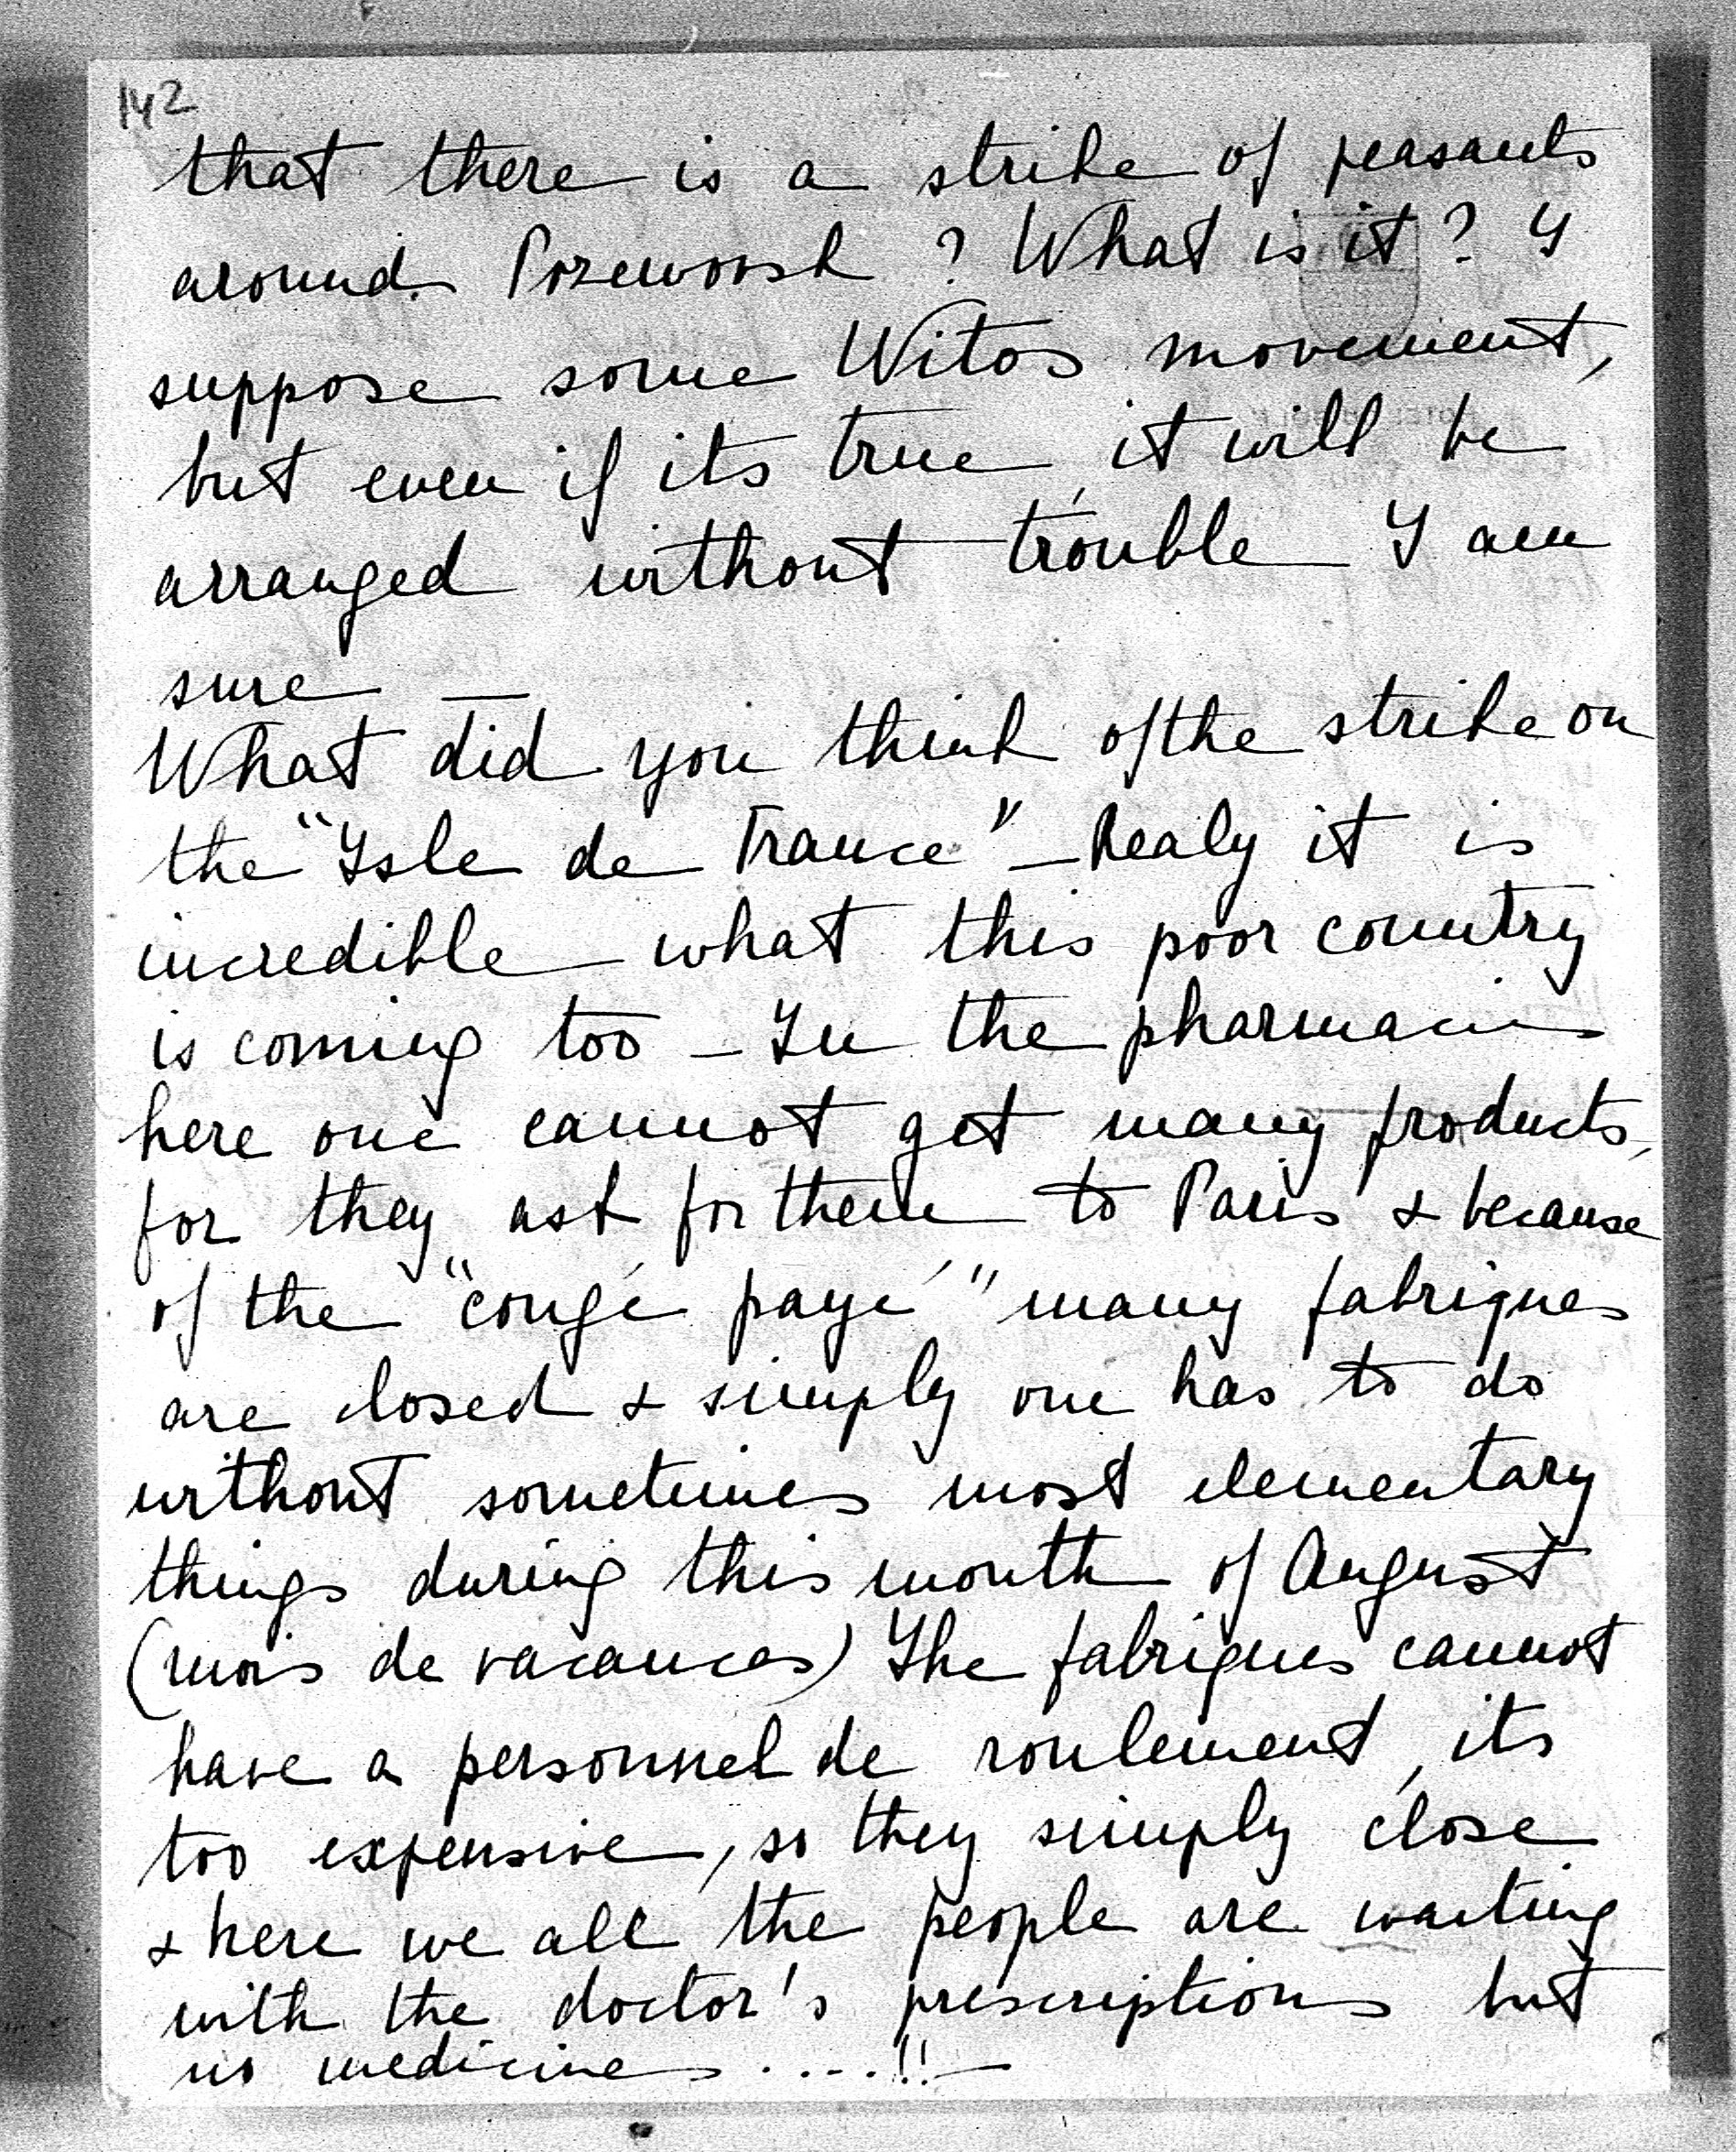 142
that there is a strike of peasants
around Przeworsk ? What is it ? I
suppose some Witos movement,
but even if its true, it will be
arranged without trouble I am
sure —
What did you think of the strike on
the "Isle de France" — Realy it is
incredible what this poor country
is coming too — In the pharmacies
here one cannot get many products,
for they ask for them to Paris & because
of the "congé payé" many fabriques
are closed & simply one has to do
without sometimes most elementary
things during this month of August
(mois de vacances) The fabriques cannot
have a personnel de roulement, its
too expensive, so they simply close
& here we all the people are waiting
with the doctor's prescriptions but
no medicines . . . . !! —